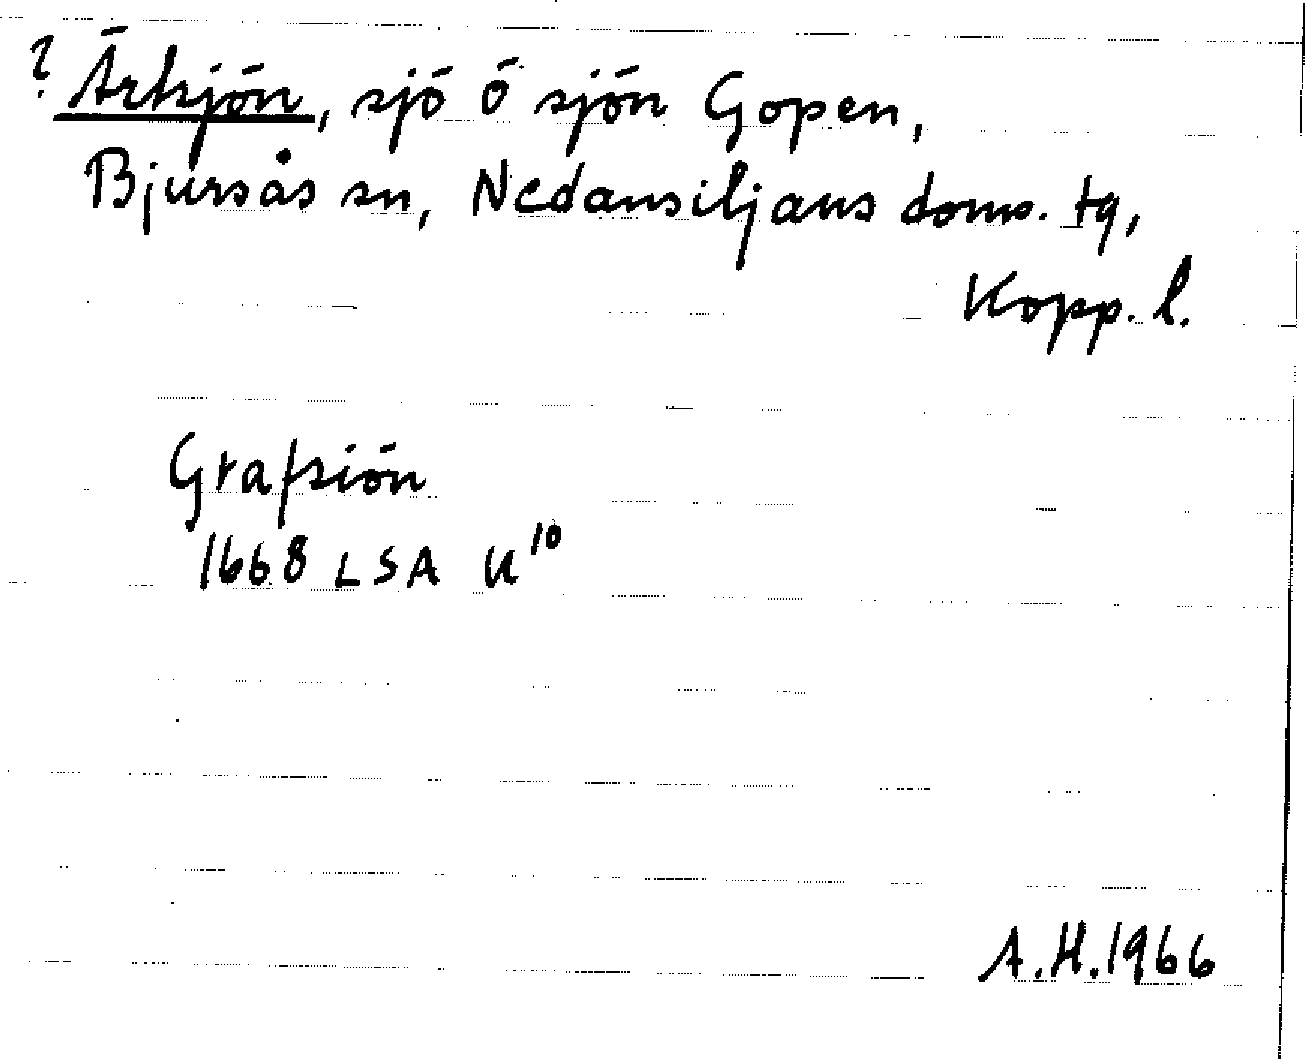 ? Ärtsjön, sjö ö sjön Gopen,
Bjursås sn, Nedansiljans doms. tg,
Kopp. l.
Grafsiön
1668 LSA U¹⁰
A.H. 1966